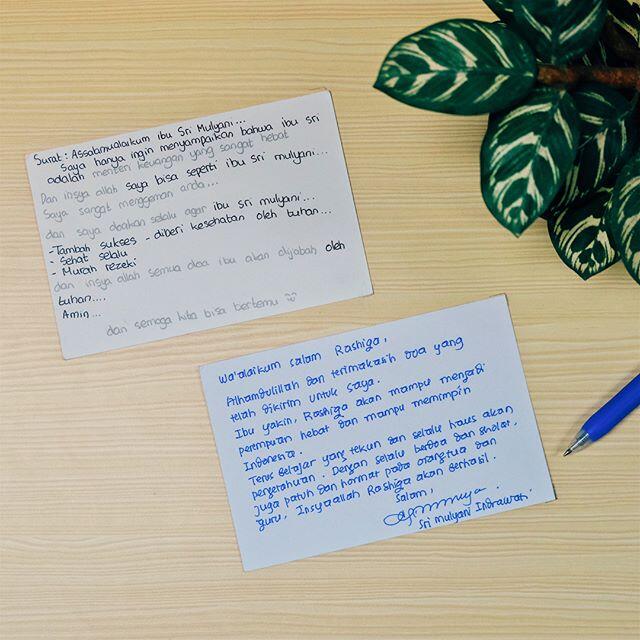 Surat : Assalamualaikum ibu Sri Mulyani...
Saya hanya ingin menyampaikan bahwa ibu sri
adalah menteri keuangan yang sangat hebat
Dan insya allah saya bisa seperti ibu sri mulyani...
Saya sangat menggemari anda...
dan saya doakan selalu agar ibu sri mulyani...
-Tambah sukses - diberi kesehatan oleh tuhan...
- Sehat selalu
- Murah rezeki
dan insya allah semua doa ibu akan dijabah oleh
tuhan....
Amin...
dan semoga kita bisa bertemu
Wa'alaikum salam Rashiga,
Alhamdulillah dan terimakasih doa yang
telah dikirim untuk saya.
Ibu yakin, Rashiga akan mampu menjadi
perempuan hebat dan mampu memimpin
Indonesia.
Terus belajar yang tekun dan selalu haus akan
pengetahuan. Dengan selalu berdoa dan sholat,
juga patuh dan hormat pada orangtua dan
guru, Insyaallah Rashiga akan berhasil.
Salam,
Sri Mulyani Indrawati